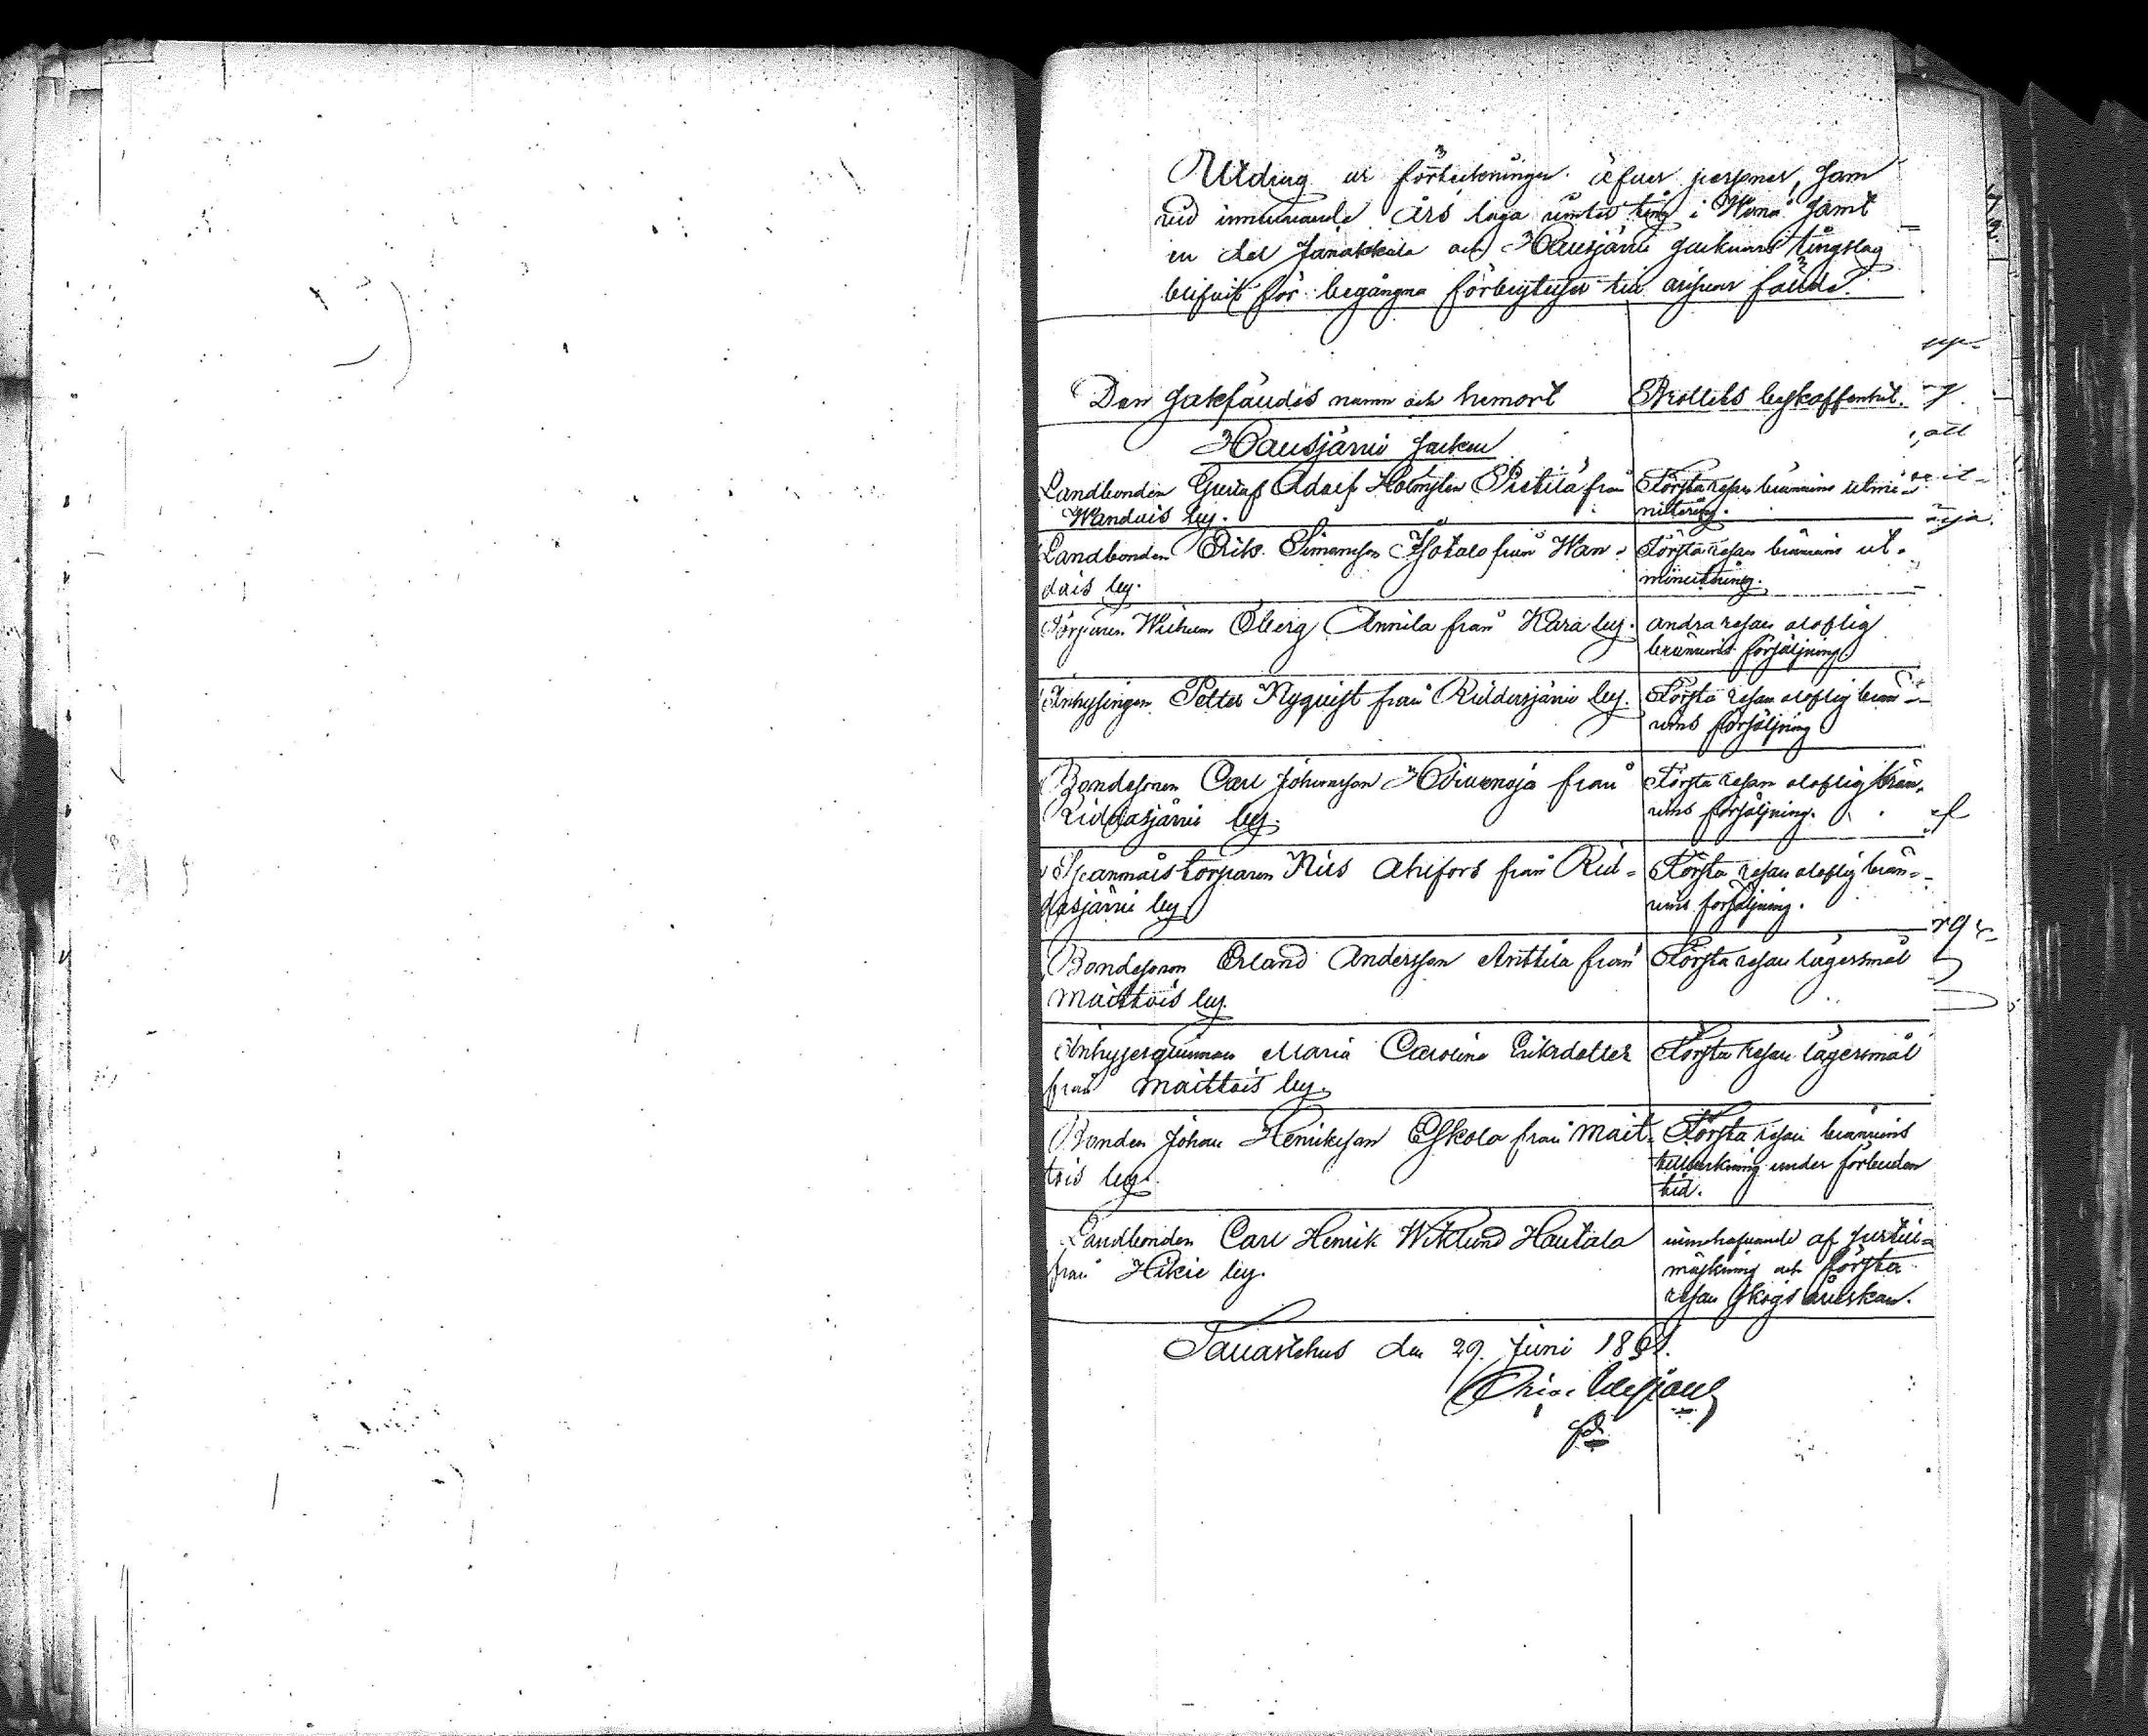 Utdrag ur förteckningen öfver personer, som
vid innevarande års laga vinter ting i Wånå samt
en del Janakkala och Hausjärvi socknars tingslag
blifvit för begångna förbrytelser till ansvar fälde.
Den sakfäldes namn och hemort
Brottets beskaffenhet.
Hausjärvi socken
Landbonden Gustaf Adolf Holmsten Pietilä från
Wandais by.
Första resan bränvins utmi-
nutering.
Landbonden Erik Simonsson Isotalo från Wan-
dais by.
Första resan bränvins ut-
minutering.
Torparen Wilhelm Öberg Annila från Kara by.
andra resan oloflig
bränvins försäljning
Inhysingen Petter Nyqvist från Riddasjärvi by.
Första resan oloflig brän-
vins försäljning
Bondesonen Carl Johansson Hirvenoja från
Riddasjärvi by.
Första resan oloflig brän-
vins försäljning.
Spanmålstorparen Nils Ahlfors från Rid-
dasjärvi by.
Första resan oloflig brän-
vins försäljning.
Bondesonen Erland Andersson Anttila från
Maittois by.
Första resan lägersmål
Inhysesqvinnan Maria Carolina Eriksdotter
från Maittois by.
Första resan lägersmål
Bonden Johan Henriksson Eskola från Mait-
tois by.
Första resan bränvins
tillverkning under förbuden
tid.
Landbonden Carl Henrik Wiklund Hautala
från Hikiä by.
innehafvande af
och första
resan skogsåverkan.
Tavastehus den 29 Juni 1861.